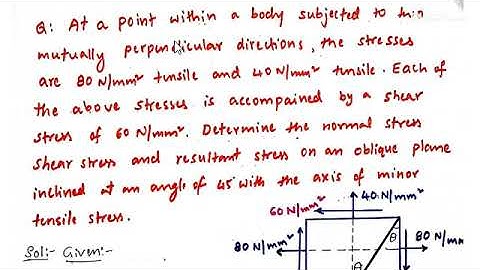 Q: At a point within a body subjected to two
mutually perpendicular directions, the stresses
are 80 N/mm² tensile and 40 N/mm² tensile. Each of
the above stresses is accompained by a shear
stress of 60 N/mm². Determine the normal stress
shear stress and resultant stress on an oblique plane
inclined at an angle of 45 with the axis of minor
tensile stress.
40 N/mm²
60 N/mm²
Sol:- Given:-
80 N/mm²
θ
80 N/mm
θ